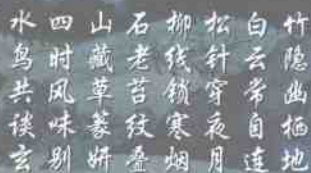 竹隐幽栖地
白云常自连
松针穿夜月
柳线锁寒烟
石老苔纹叠
山藏草篆妍
四时风味别
水鸟共谈玄